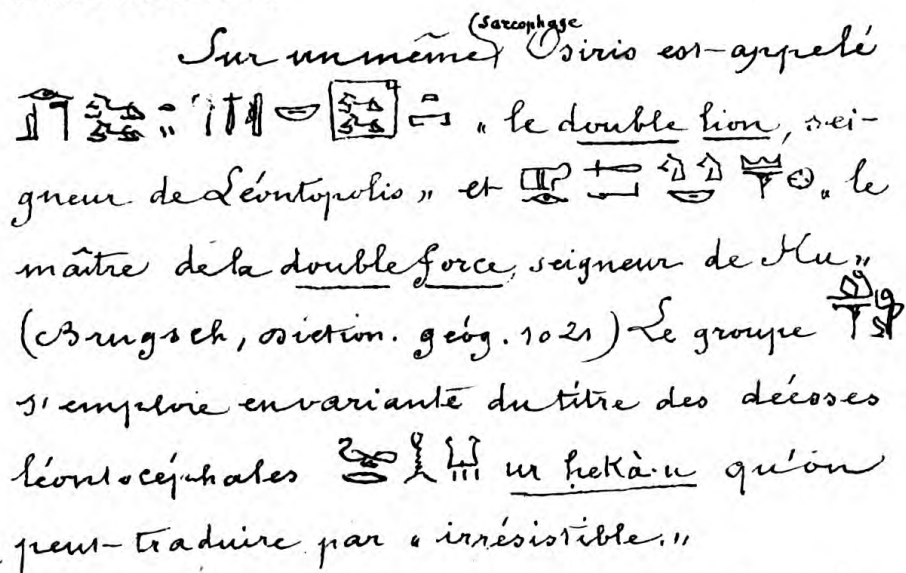 (sarcophage
Sur un même Osiris est-appelé
„ le double lion, sei-
gneur de Léontopolis „ et „ le
maître de la double force, seigneur de Hu „
(Brugsch, diction. géog. 1021) Le groupe
s'emploie en variante du titre des déesses
léontocéphales ur ḥekà·u qu'on
peut-traduire par « irrésistible. „